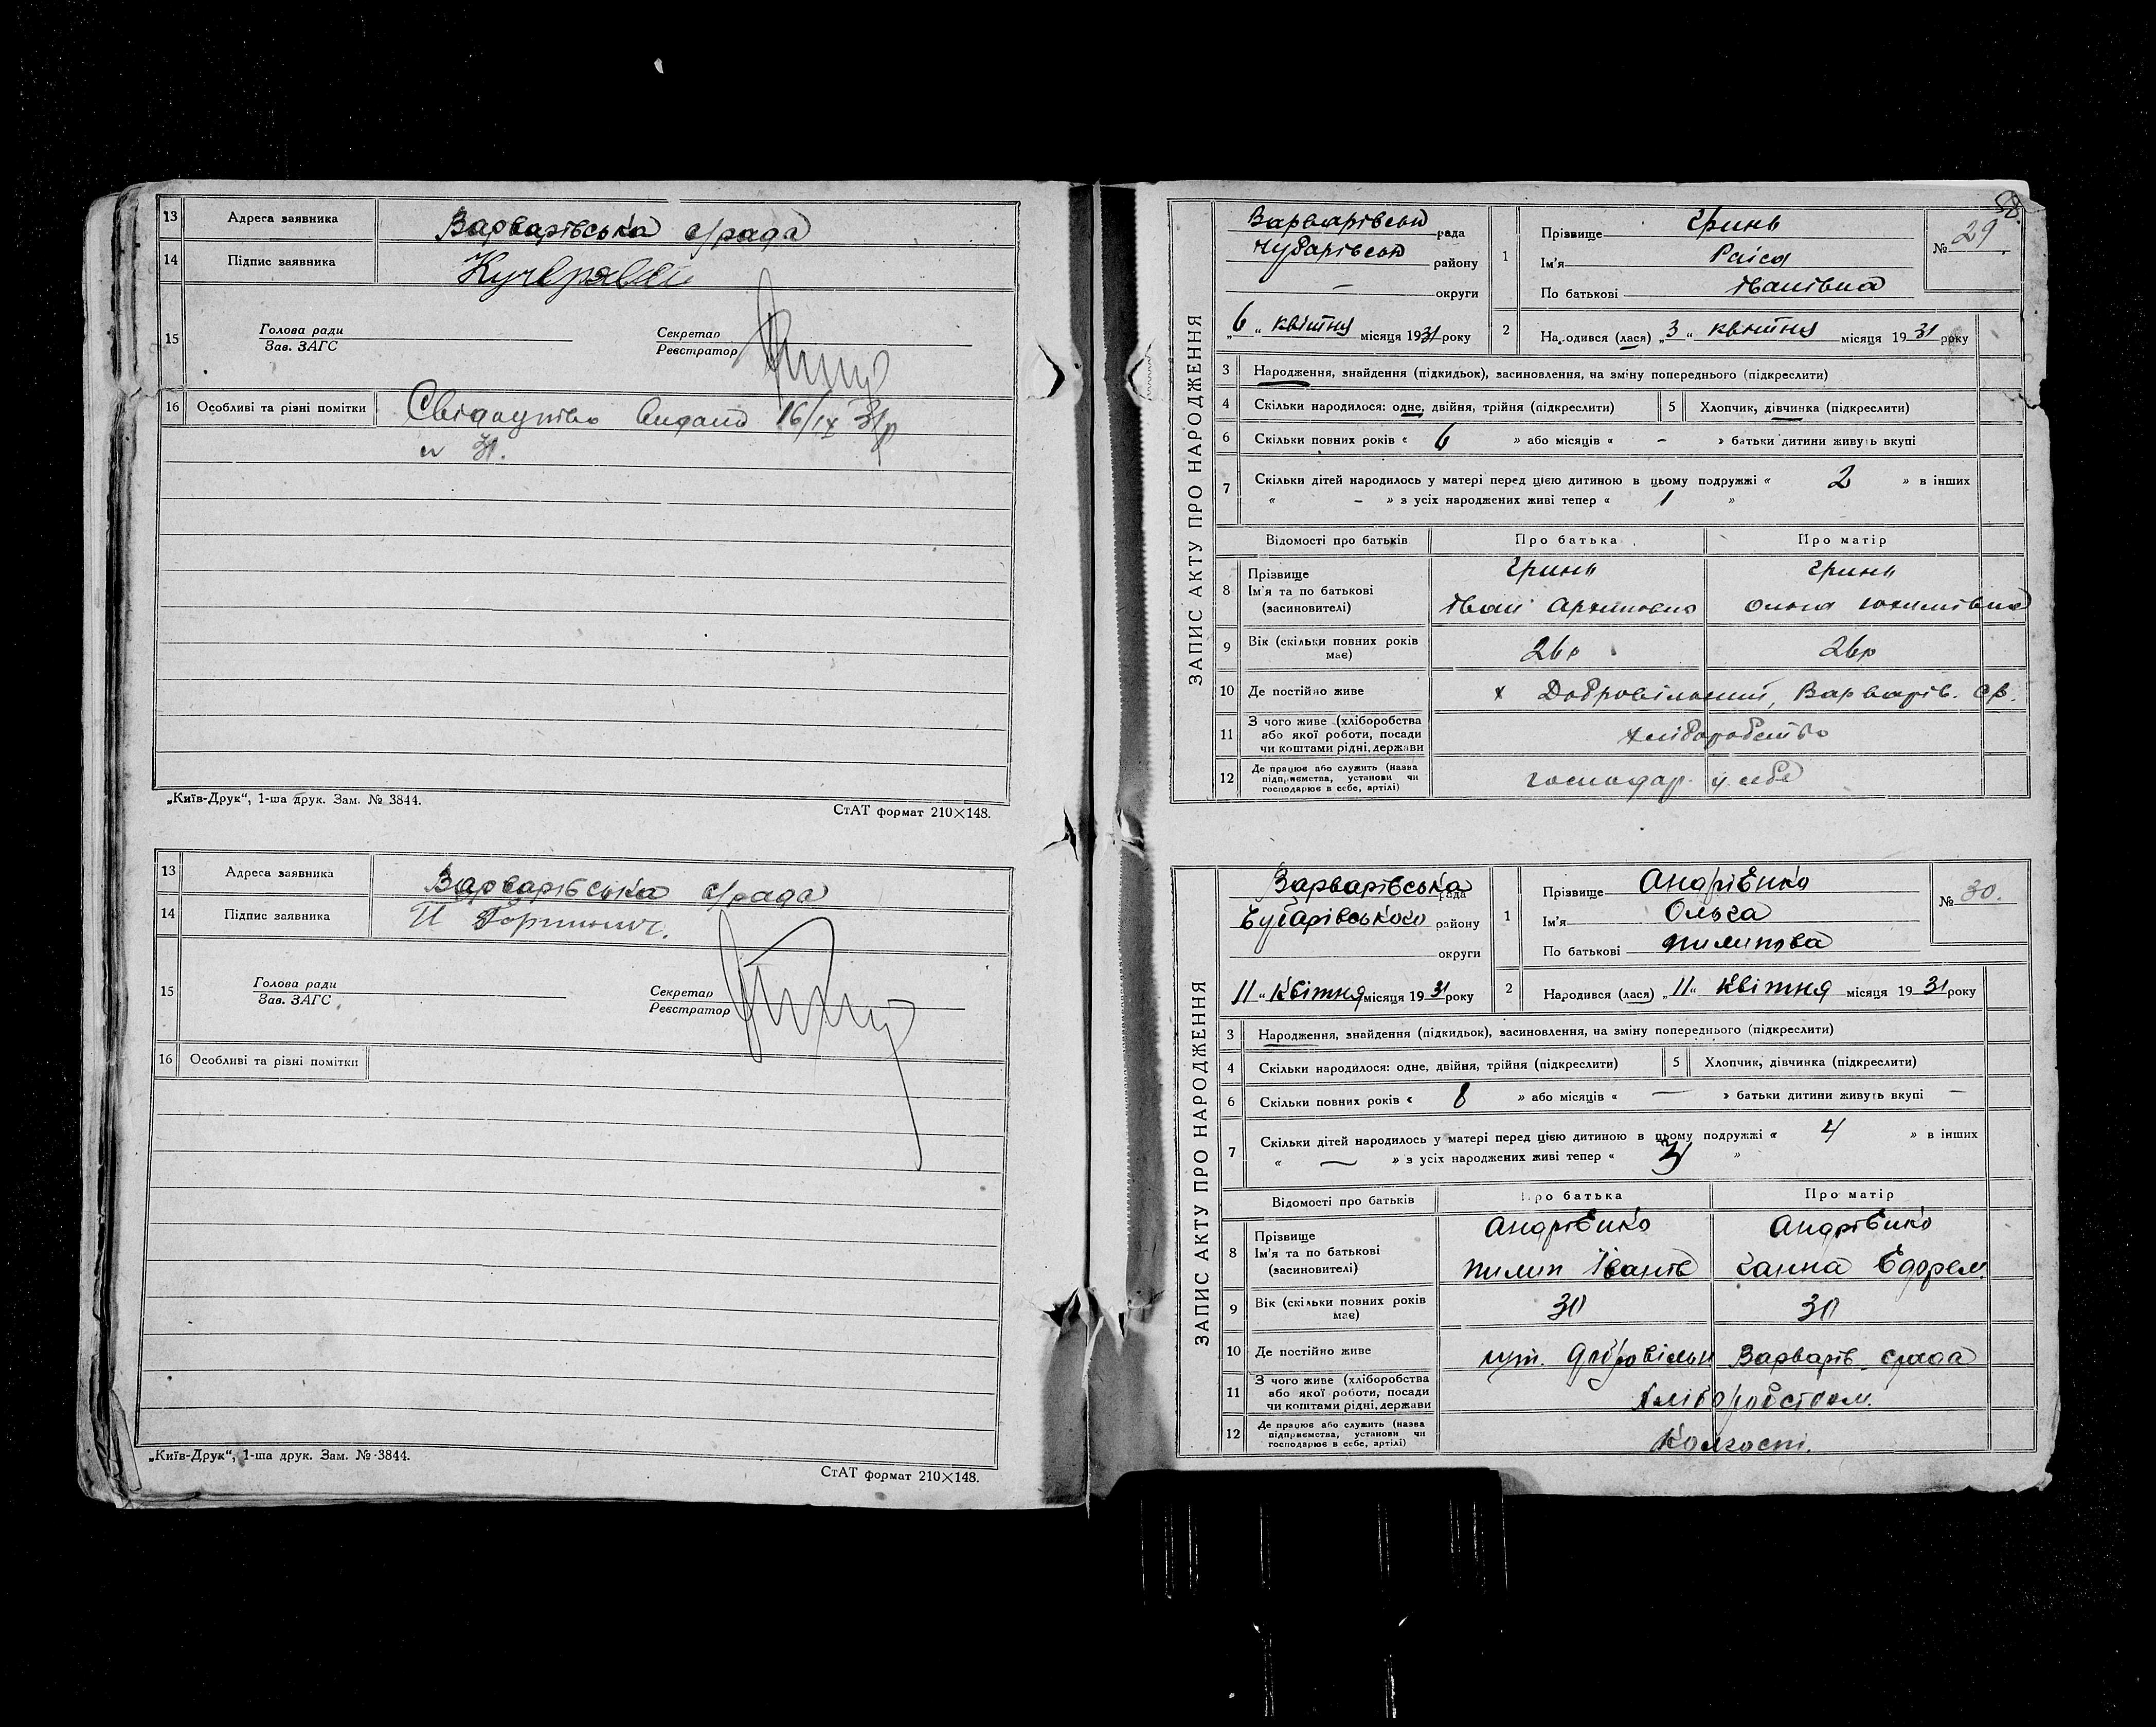 13 Адреса заявника Варварівська с/рада
14 Підпис заявника
15 Голова ради
Зав. ЗАГС
Секретар
Реєстратор
16 Особливі та різні помітки Свідоцтво видано 16/IX 31р
„Київ-Друк“, 1-ша друк. Зам. № 3844.
СтАТ формат 210×148.
13 Адреса заявника Варварівська с/рада
14 Підпис заявника
15 Голова ради
Зав. ЗАГС
Секретар
Реєстратор
16 Особливі та різні помітки
„Київ-Друк“, 1-ша друк. Зам. № 3844.
СтАТ формат 210×148.
58.
ЗАПИС АКТУ ПРО НАРОДЖЕННЯ
Варварівськ рада
Чубарівськ району
— округи
„6“ квітня місяця 1931 року
1 Прізвище Гринь
Ім'я Раіса
По батькові Іванівна
№ 29
2 Народився (лася) „3“ квітня місяця 1931 року
3 Народження, знайдення (підкидьок), засиновлення, на зміну попереднього (підкреслити)
4 Скільки народилося: одне, двійня, трійня (підкреслити) 5 Хлопчик, дівчинка (підкреслити)
6 Скільки повних років « 6 » або місяців « - » батьки дитини живуть вкупі
7 Скільки дітей народилось у матері перед цією дитиною в цьому подружжі « 2 » в інших
« - » з усіх народжених живі тепер « 1 »
Відомості про батьків Про батька Про матір
8 Прізвище Гринь Гринь
Ім'я та по батькові
(засновителі) Іван Ольга
9 Вік (скільки повних років має) 26р 26р
10 Де постійно живе х Добровільний, Варварів. ср.
11 З чого живе (хліборобства
або якої роботи, посади
чи коштами рідні, держави хліборобство
12 Де працює або служить (назва
підприємства, установи чи
господарює в себе, артілі) господар. у себе
ЗАПИС АКТУ ПРО НАРОДЖЕННЯ
Варварівська рада
Чубарівського району
округи
„11“ Квітня місяця 1931 року
1 Прізвище Андрієнко
Ім'я Ольга
По батькові Пилипова
№ 30.
2 Народився (лася) „11“ Квітня місяця 1931 року
3 Народження, знайдення (підкидьок), засиновлення, на зміну попереднього (підкреслити)
4 Скільки народилося: одне, двійня, трійня (підкреслити) 5 Хлопчик, дівчинка (підкреслити)
6 Скільки повних років « 8 » або місяців « — » батьки дитини живуть вкупі —
7 Скільки дітей народилось у матері перед цією дитиною в цьому подружжі « 4 » в інших
« — » з усіх народжених живі тепер « 3 »
Відомості про батьків Про батька Про матір
8 Прізвище Андрієнко Андрієнко
Ім'я та по батькові
(засиновителі) Пилип Іванів Ганна
9 Вік (скільки повних років має) 30 30
10 Де постійно живе Варварів. срада
11 З чого живе (хліборобства
або якої роботи, посади
чи коштами рідні, держави Хліборобством.
12 Де працює або служить (назва
підприємства, установи чи
господарює в себе, артілі) Колгосп.